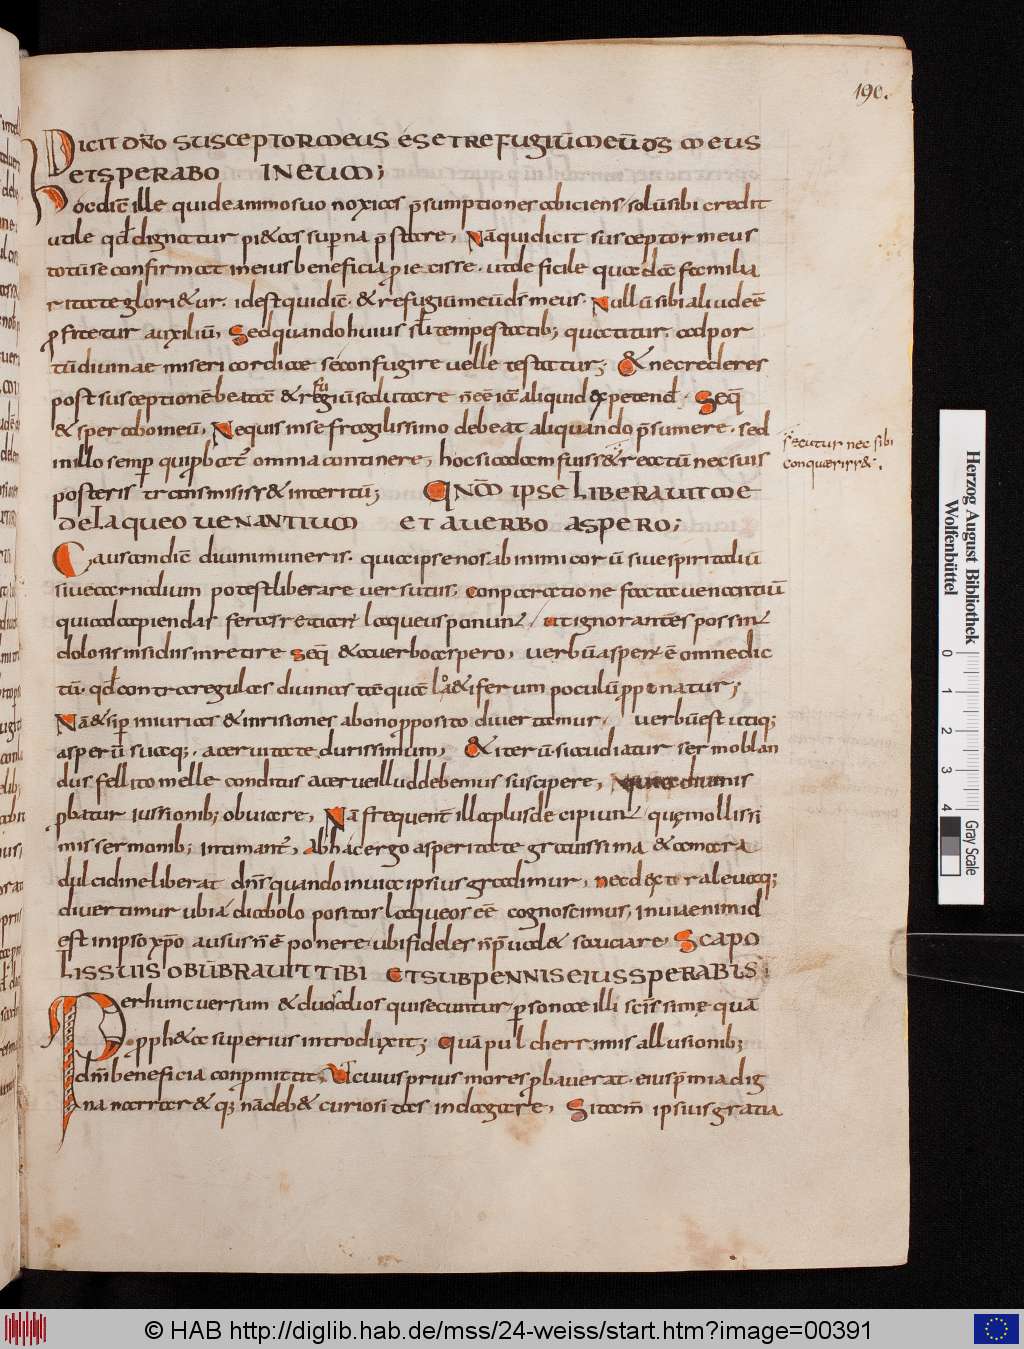 190.
DICIT DNO SUSCEPTOR MEUS ES ET REFUGIŪ MEŪ DS MEUS
ET SPERABO IN EUM;
Hoc dicit ille qui de animo suo noxias psumptiones abiciens, solū sibi credit
utile qd dignatur pietas superna pstare, Nā qui dicit susceptor meus
totū se confirmat in eius beneficia pieCisse. ut de facile quadā familia
ritate glorietur. id est qui dicē. & refugiū meū ds meus. Nullū sibi aliud eē
pfitetur auxiliū, Sed quando huius scli tempestatib; quatitur. ad por
tū diuinae misericordiae se confugire uelle testatur; & ne crederes
post susceptionē beatā & refugiū salutare aliquid expetend. Seq
& sperabo in eū, Nequis in se fragilissimo debeat aliquando psumere. sed
in illo semp omnia continere, hoc si adam fuiss& reatū nec suis
posteris transmisiss& interitū; QNM IPSE LIBERAUIT ME
DE LAQUEO UENANTIUM ET A UERBO ASPERO;
Causam dicit diuini muneris. quia ipse nos ab inimicorū siue spiritaliū
siue carnalium potest liberare uersutiis, conparatione facta uenantiū
qui ad capiendas feras retia & laqueus ponunt, ut ignorantes possint
dolosis insidiis inretire Seq & a uerbo aspero, uerbū asperū ē omne dic
tū. qd contra regulas diuinas tāquā mortiferum poculū pponatur;
Nā & sup iniurias & inrisiones a bono pposito diuertamur, uerbū est utiq;
asperū suaq;. aceruitate durissimum, & iterū si audiatur sermo blan
dus fellito melle conditus a uer illud debemus suscipere, quae diuinis
pbatur iussionib; obuiare, Nā frequent illa plus decipiunt quę mollissi
mis sermonib; intimant, Ab hac ergo asperitate grauissima & amara
dulcidine liberat dns quando in uia ipsius gradimur, nec dextra leuaq;
diuertimur ubi a diabolo positos laqueos eē cognoscimus, in uia enim id
est in ipso xpo ausus n ē ponere. ubi fideles n pualet sauciare, SCAPO
LIS SUIS OBŪBRAUIT TIBI ET SUB PENNIS EIUS SPERABIS;
Per hunc uersum & duos alios qui secuntur, psona illi scissimę quā
pph&a superius introduxit; Quā pulcherrimis allusionib;
dni beneficia conpmittit, Ut cuius prius mores pbauerat. eius pmia dig
na narrar& q; nā deb& curiositas indagare, Si tam ipsius gratia
secutur nec sibi
conquirer&.
Herzog August Bibliothek
Wolfenbüttel
0 1 2 3 4
Gray Scale
© HAB http://diglib.hab.de/mss/24-weiss/start.htm?image=00391